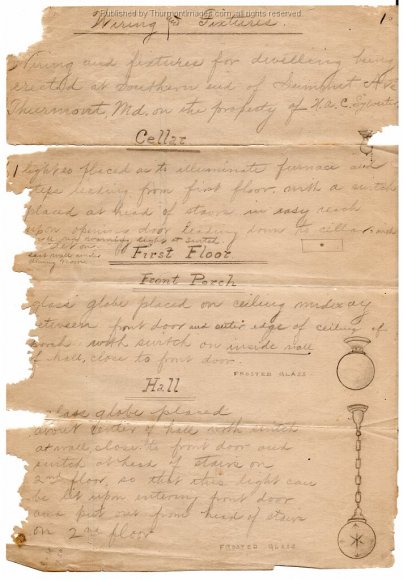 Published by ThurmontImages.com all rights reserved
1
Wiring & Fixtures.
Wiring and fixtures for dwelling being
erected at southern end of Summit Ave
Thurmont, Md. on the property of H. A. C.
Cellar
1 light so placed as to illuminate furnace and
steps leading from first floor, with a switch
placed at head of stairs in easy reach
upon opening door leading down to cellar, and
light at switch
First Floor
Front Porch
glass globe placed on ceiling midway
between front door and outer edge of ceiling of
porch with switch on inside wall
of hall, close to front door.
FROSTED GLASS
Hall
glass globe placed
about center of hall with switch
at wall close to front door and
switch at head of stairs on
2nd floor, so that this light can
be lit upon entering front door
and put out from head of stairs
on 2nd floor.
FROSTED GLASS